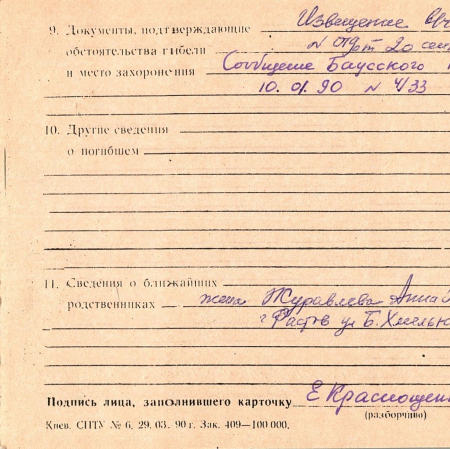 9. Документы, подтверждающие Извещение
обстоятельства гибели от 20
и место захоронения Сообщение Баусского
10.01.90 N 4/33
10. Другие сведения
о погибшем
11. Сведения о ближайших
родственниках жена Журавлева Анна
г Фастов ул Б. Хмельн
Подпись лица, заполнившего карточку Е Краснощек
(разборчиво)
Киев. СПТУ № 6. 29. 03. 90 г. Зак. 409—100 000.